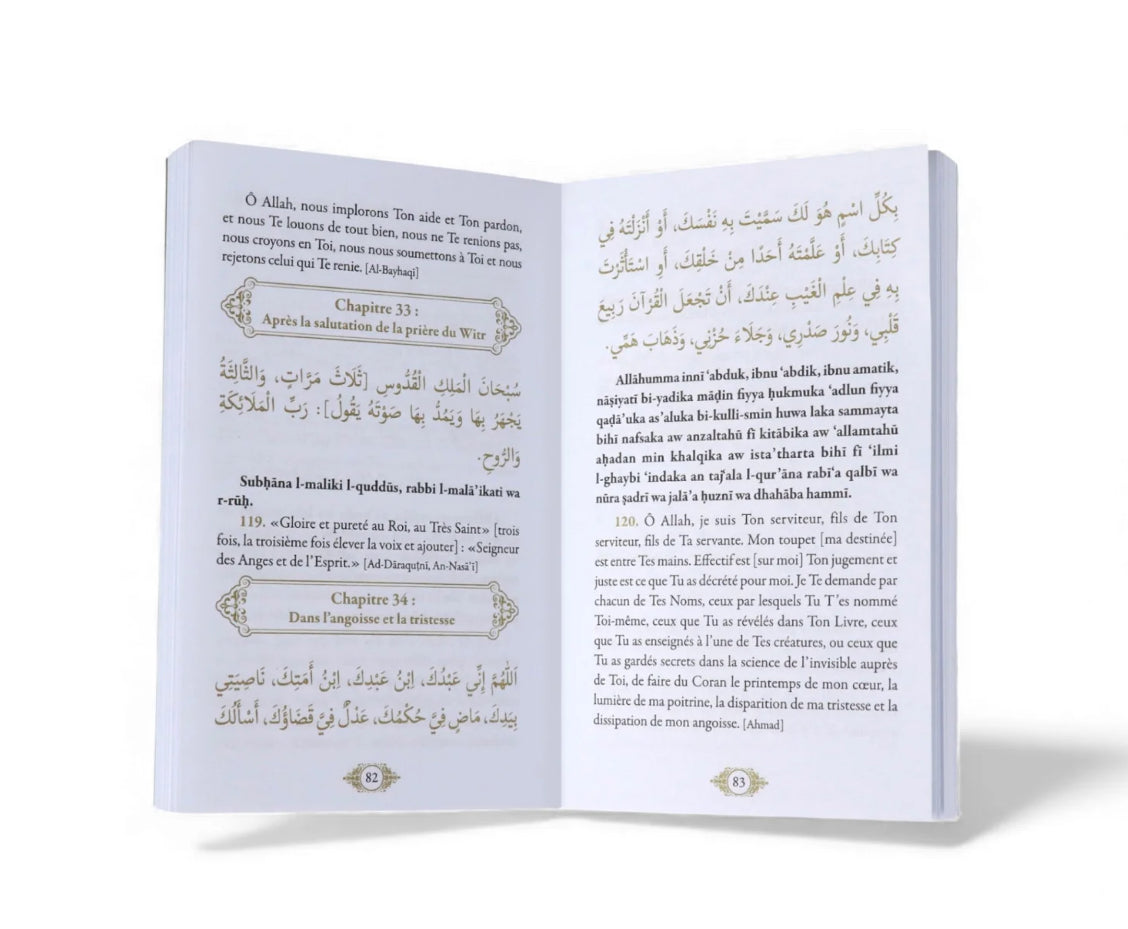 Ô Allah, nous implorons Ton aide et Ton pardon,
et nous Te louons de tout bien, nous ne Te renions pas,
nous croyons en Toi, nous nous soumettons à Toi et nous
rejetons celui qui Te renie. [Al-Bayhaqi]
Chapitre 33 :
Après la salutation de la prière du Witr
سُبْحَانَ الْمَلِكِ الْقُدُّوسِ [ثَلَاثَ مَرَّاتٍ، وَالثَّالِثَةُ
يَجْهَرُ بِهَا وَيَمُدُّ بِهَا صَوْتَهُ يَقُولُ]: رَبِّ الْمَلَائِكَةِ
وَالرُّوحِ.
Subḥāna l-maliki l-quddūs, rabbi l-malā’ikati wa
r-rūḥ.
119. «Gloire et pureté au Roi, au Très Saint» [trois
fois, la troisième fois élever la voix et ajouter] : «Seigneur
des Anges et de l’Esprit.» [Ad-Dāraquṭnī, An-Nasā’ī]
Chapitre 34 :
Dans l’angoisse et la tristesse
اَللّٰهُمَّ إِنِّي عَبْدُكَ، اِبْنُ عَبْدِكَ، اِبْنُ أَمَتِكَ، نَاصِيَتِي
بِيَدِكَ، مَاضٍ فِيَّ حُكْمُكَ، عَدْلٌ فِيَّ قَضَاؤُكَ، أَسْأَلُكَ
82
بِكُلِّ اسْمٍ هُوَ لَكَ سَمَّيْتَ بِهِ نَفْسَكَ، أَوْ أَنْزَلْتَهُ فِي
كِتَابِكَ، أَوْ عَلَّمْتَهُ أَحَدًا مِنْ خَلْقِكَ، أَوِ اسْتَأْثَرْتَ
بِهِ فِي عِلْمِ الْغَيْبِ عِنْدَكَ، أَنْ تَجْعَلَ الْقُرْآنَ رَبِيعَ
قَلْبِي، وَنُورَ صَدْرِي، وَجَلَاءَ حُزْنِي، وَذَهَابَ هَمِّي.
Allāhumma innī ‘abduk, ibnu ‘abdik, ibnu amatik,
nāṣiyatī bi-yadika māḍin fiyya ḥukmuka ‘adlun fiyya
qaḍā’uka as’aluka bi-kulli-smin huwa laka sammayta
bihī nafsaka aw anzaltahū fī kitābika aw ‘allamtahū
aḥadan min khalqika aw ista’tharta bihī fī ‘ilmi
l-ghaybi ‘indaka an taj‘ala l-qur’āna rabī‘a qalbī wa
nūra ṣadrī wa jalā’a ḥuznī wa dhahāba hammī.
120. Ô Allah, je suis Ton serviteur, fils de Ton
serviteur, fils de Ta servante. Mon toupet [ma destinée]
est entre Tes mains. Effectif est [sur moi] Ton jugement et
juste est ce que Tu as décrété pour moi. Je Te demande par
chacun de Tes Noms, ceux par lesquels Tu T’es nommé
Toi-même, ceux que Tu as révélés dans Ton Livre, ceux
que Tu as enseignés à l’une de Tes créatures, ou ceux que
Tu as gardés secrets dans la science de l’invisible auprès
de Toi, de faire du Coran le printemps de mon cœur, la
lumière de ma poitrine, la disparition de ma tristesse et la
dissipation de mon angoisse. [Ahmad]
83